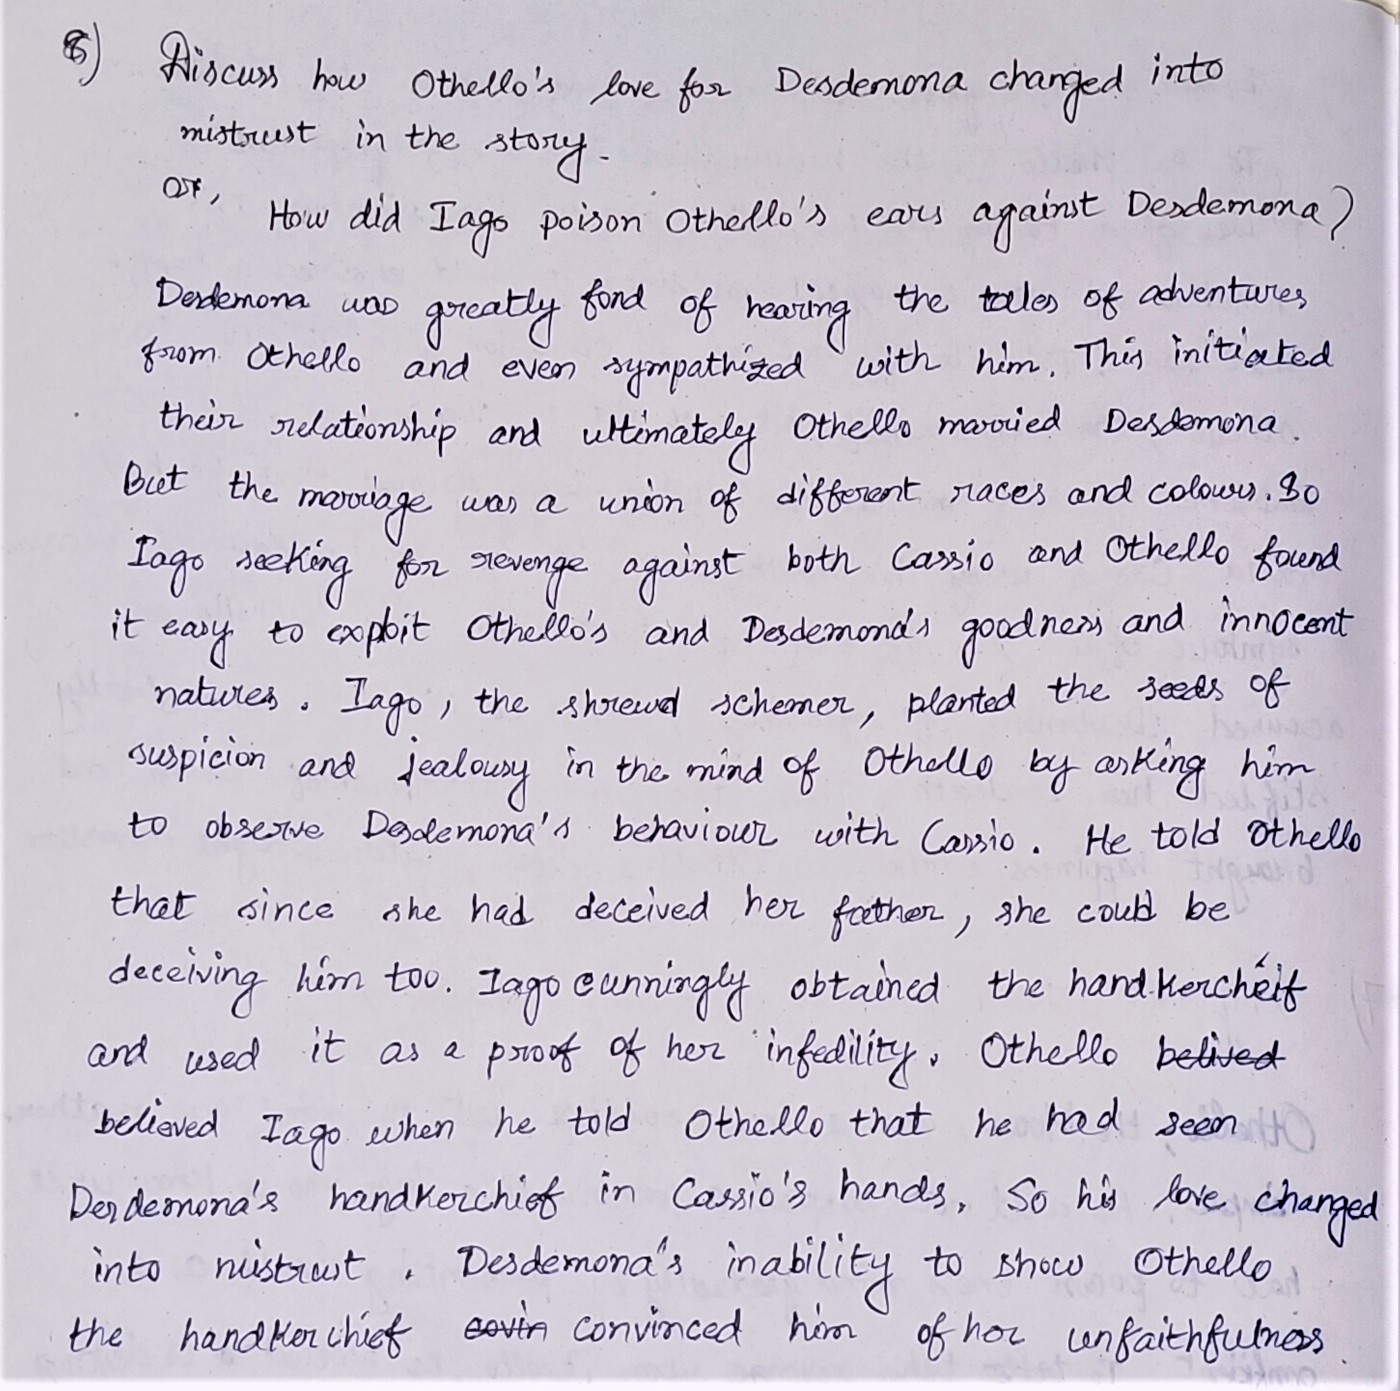 8) Discuss how Othello's love for Desdemona changed into
mistrust in the story.
or,
How did Iago poison Othello's ears against Desdemona?
Desdemona was greatly fond of hearing the tales of adventures
from Othello and even sympathized with him. This initiated
their relationship and ultimately Othello married Desdemona.
But the marriage was a union of different races and colours. So
Iago seeking for revenge against both Cassio and Othello found
it easy to exploit Othello's and Desdemona's goodness and innocent
natures. Iago, the shrewd schemer, planted the seeds of
suspicion and jealousy in the mind of Othello by asking him
to observe Desdemona's behaviour with Cassio. He told Othello
that since she had deceived her father, she could be
deceiving him too. Iago cunningly obtained the handkercheif
and used it as a proof of her infedility. Othello belived
believed Iago when he told Othello that he had seen
Desdemona's handkerchief in Cassio's hands. So his love changed
into mistrust. Desdemona's inability to show Othello
the handkerchief covin convinced him of her unfaithfulness.